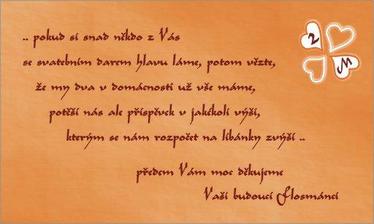 .. pokud si snad někdo z Vás
se svatebním darem hlavu láme, potom vězte,
že my dva v domácnosti už vše máme,
potěší nás ale příspěvek v jakékoli výši,
kterým se nám rozpočet na líbánky zvýší ..
předem Vám moc děkujeme
Vaši budoucí Flosmánci
2
M